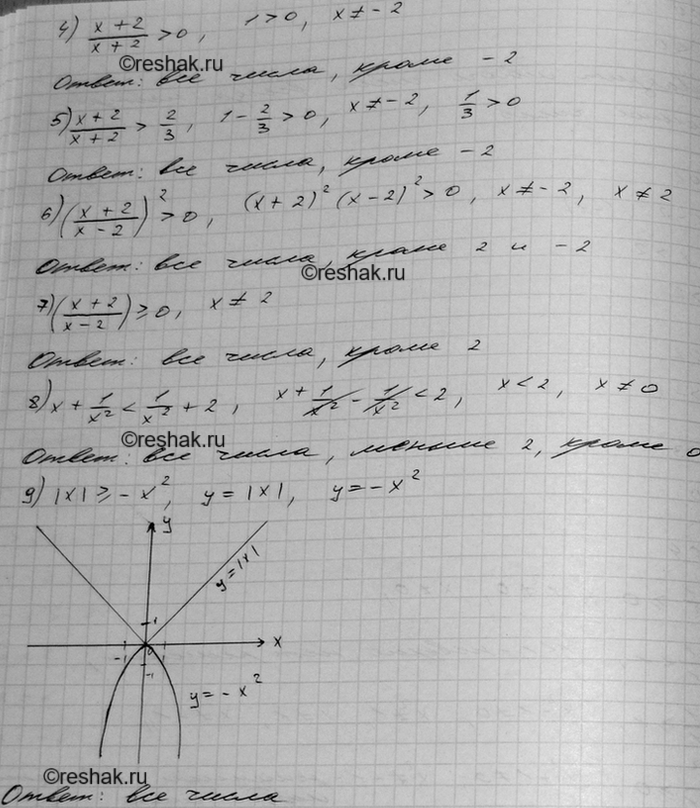 4) (x + 2)/(x + 2) > 0, 1 > 0, x ≠ - 2
©reshak.ru
Ответ: все числа, кроме - 2
5) (x + 2)/(x + 2) > 2/3, 1 - 2/3 > 0, x ≠ - 2, 1/3 > 0
Ответ: все числа, кроме - 2
6) ((x + 2)/(x - 2))² > 0, (x + 2)² (x - 2)² > 0, x ≠ - 2, x ≠ 2
Ответ: все числа, кроме 2 и - 2
©reshak.ru
7) ((x + 2)/(x - 2)) ≥ 0, x ≠ 2
Ответ: все числа, кроме 2
8) x + 1/x² < 1/x² + 2, x + 1/x² - 1/x² < 2, x < 2, x ≠ 0
©reshak.ru
Ответ: все числа, меньше 2, кроме 0
9) |x| ≥ - x², y = |x|, y = - x²
y
y = |x|
1
x
-1 0 1
-1
y = - x²
©reshak.ru
Ответ: все числа